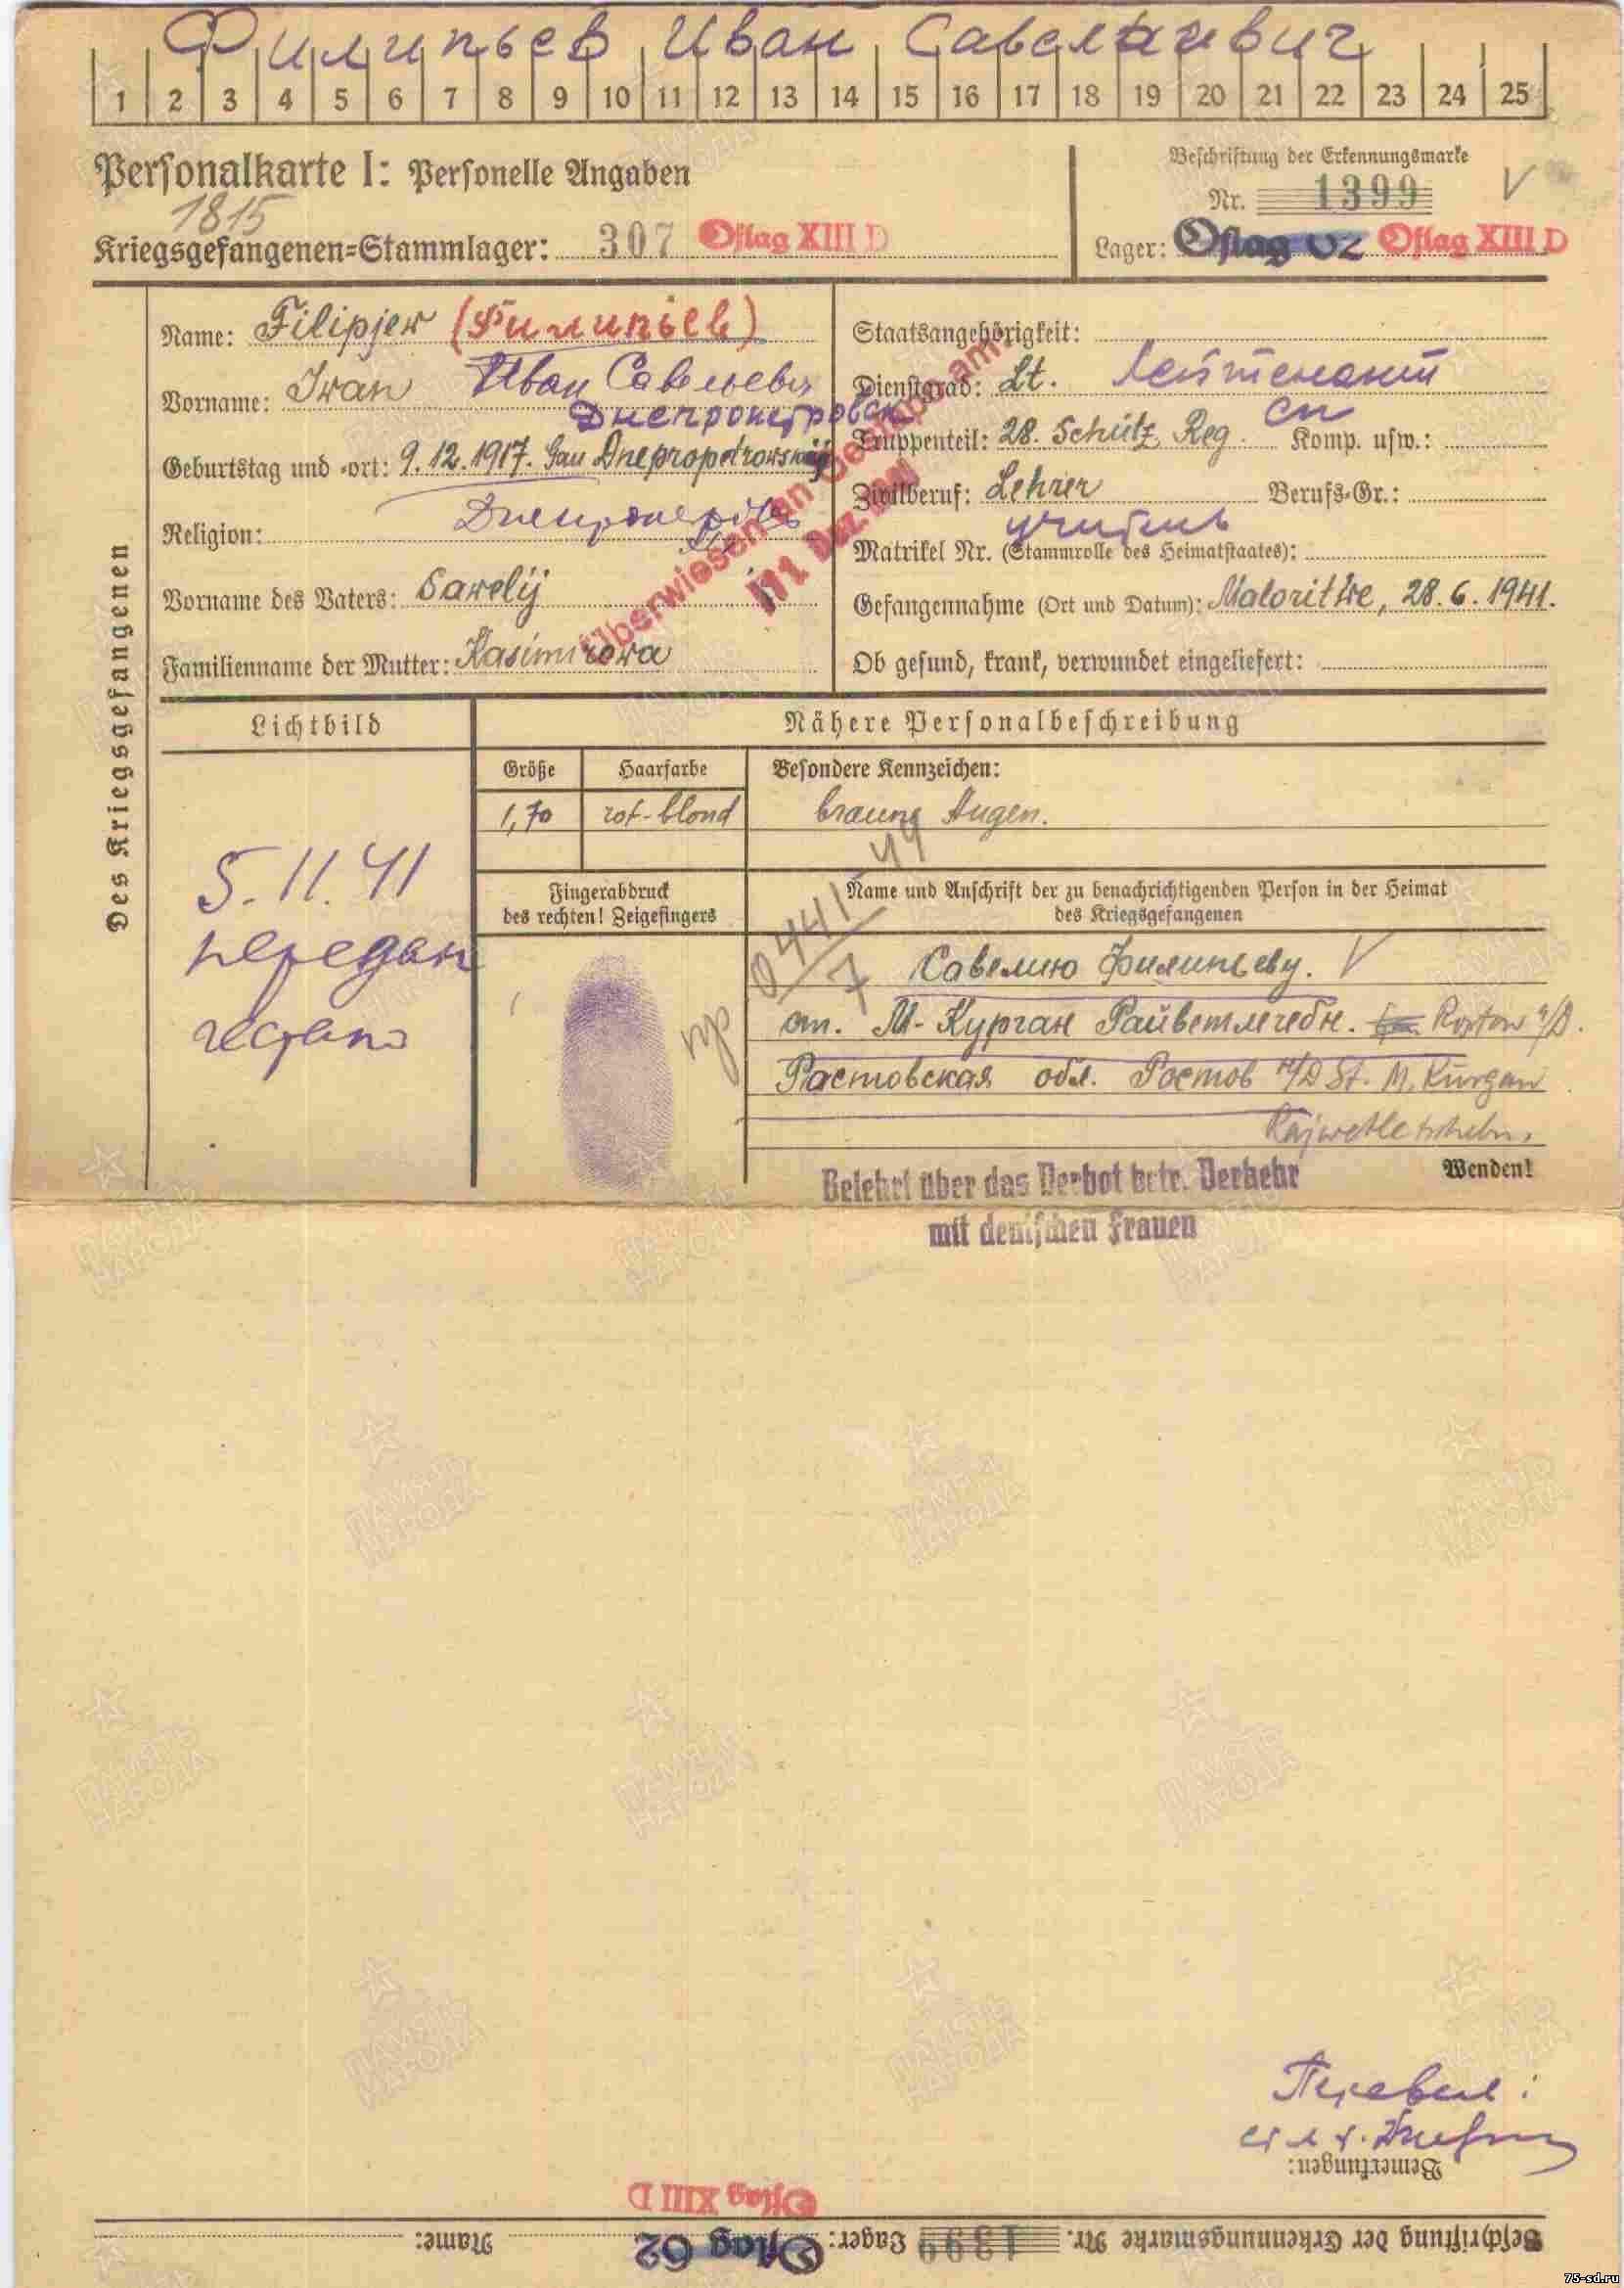 Филипьев Иван Савелиевич
1 2 3 4 5 6 7 8 9 10 11 12 13 14 15 16 17 18 19 20 21 22 23 24 25
Personalkarte I: Personelle Angaben
Beschriftung der Erkennungsmarke
1815
Nr. 1399
Kriegsgefangenen-Stammlager: 307 Oflag XIII D
Lager: Oflag 62 Oflag XIII D
Des Kriegsgefangenen
Name: Filipjew (Филипьев)
Vorname: Iwan Иван Савельевич
Днепропетровск
Geburtstag und -ort: 9.12.1917. Gau Dnepropetrowskij
Religion:
Vorname des Vaters: Sawelij
Familienname der Mutter: Kasimirowa
Überwiesen an Gestapo am:
Staatsangehörigkeit:
Dienstgrad: Lt. Лейтенант
Truppenteil: 28. Schütz. Reg. сп Komp. usw.:
Zivilberuf: Lehrer Berufs-Gr.:
учитель
Matrikel Nr. (Stammrolle des Heimatstaates):
Gefangennahme (Ort und Datum): Maloritke, 28.6.1941.
Ob gesund, krank, verwundet eingeliefert:
Lichtbild
Nähere Personalbeschreibung
Größe
Haarfarbe
Besondere Kennzeichen:
1,70
rot-blond
braune Augen.
5.11.41
передан
гестапо
Fingerabdruck
des rechten! Zeigefingers
Name und Anschrift der zu benachrichtigenden Person in der Heimat
des Kriegsgefangenen
Савелию Филипьеву.
ст. М-Курган Райветлечебн. Rostow n/D.
Растовская обл. Ростов н/D St. M. Kurgan
Rajwetletschebn.
Wenden!
Belehrt über das Verbot betr. Verkehr
mit deutschen Frauen
Перевел:
Bemerkungen:
Oflag XIII D
Beschriftung der Erkennungsmarke Nr. 1399 Lager: Oflag 62 Name:
ПАМЯТЬ НАРОДА
75-sd.ru